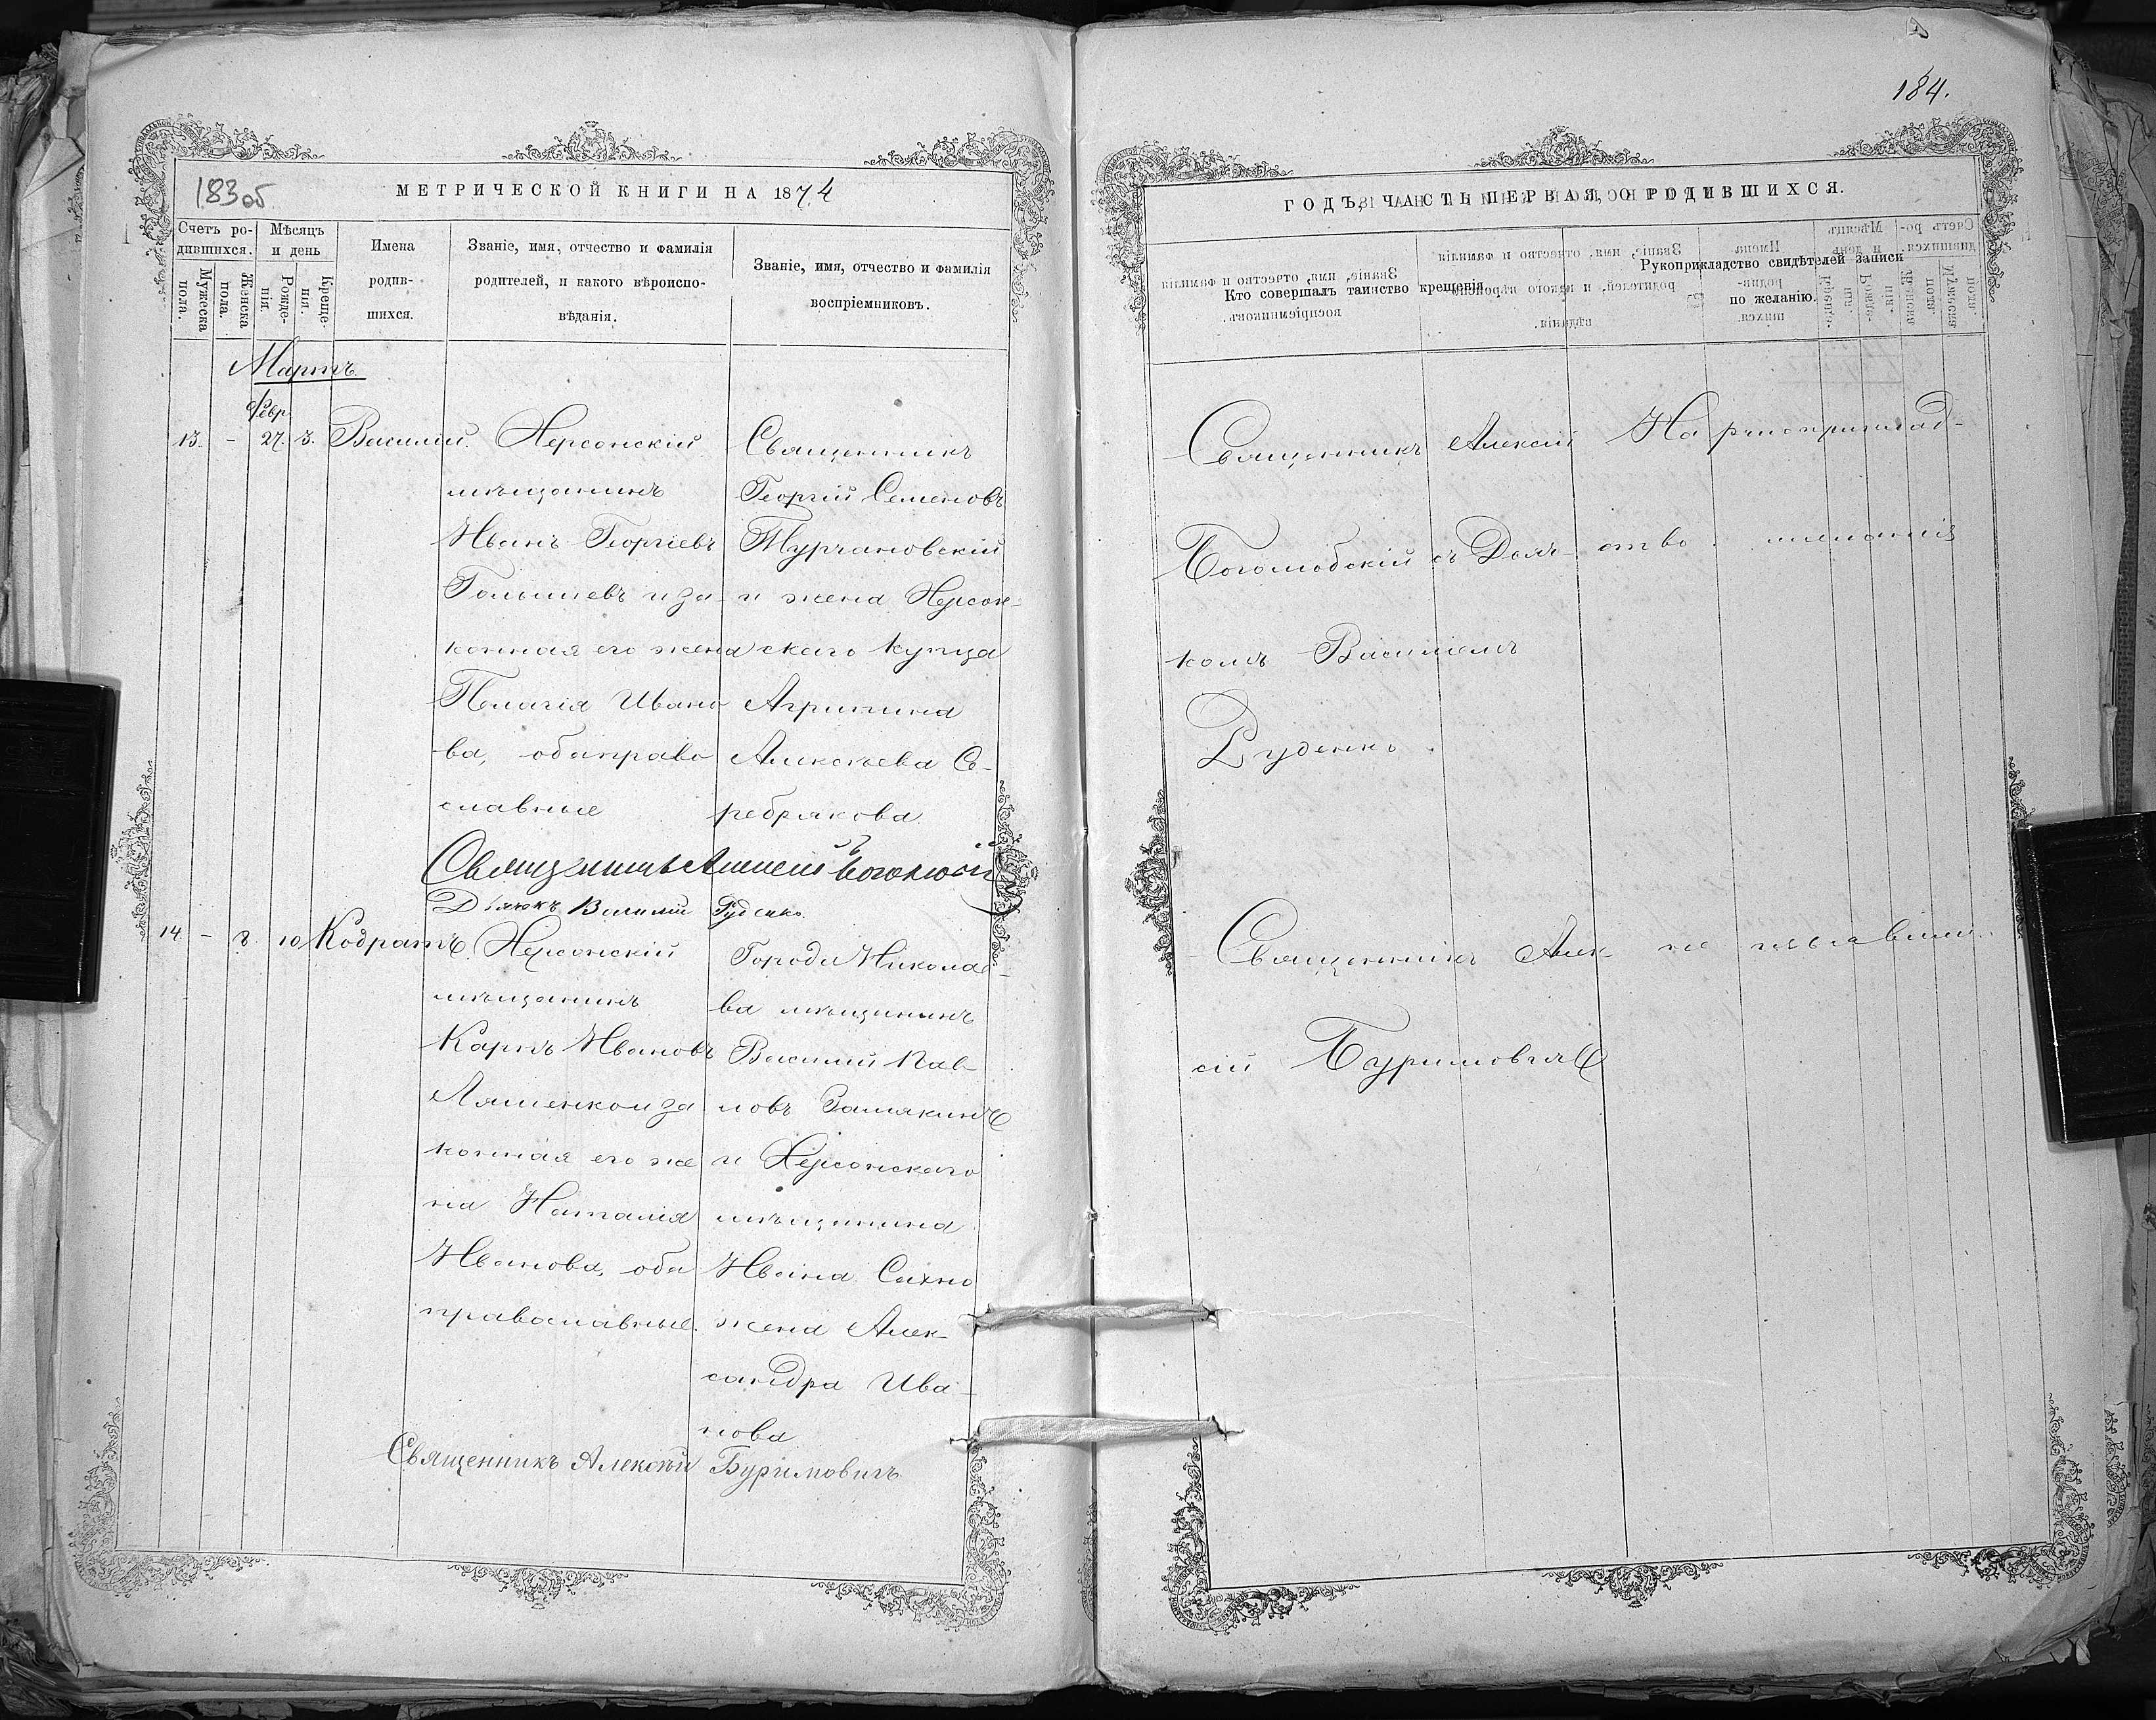 184.
183 об
МЕТРИЧЕСКОЙ КНИГИ НА 1874
Счетъ ро-
дившихся.
Мужеска
пола.
Женска
пола.
Мѣсяцъ
и день
Рожде-
нія.
Креще-
нія.
Имена
родив-
шихся.
Званіе, имя, отчество и фамилія
родителей, и какого вѣроиспо-
вѣданія.
Званіе, имя, отчество и фамилія
воспріемниковъ.
Мартъ
Февр.
13. - 27. 3. Василій.
Херсонскій
мѣщанинъ
Иванъ Георгіевъ
и за-
конная его жена
Пелагія Ивано
ва, оба право
славные
Священникъ
Георгій Семеновъ
Турчановскій
и жена Херсон-
скаго купца
Агрипина
Алексѣева Се-
ребрякова
Священникъ Алексій
Дьякъ Василій Руденко
14. - 8. 10 Кодратъ.
Херсонскій
мѣщанинъ
Карпъ Ивановъ
Ляшенко и за
конная его же
на Наталія
Иванова, оба
православные.
Города Николае-
ва мѣщанинъ
Василій Пав
ловъ Замякинъ
и Херсонскаго
мѣщанина
Ивана Сахно
жена Алек-
сандра Ива-
нова
Священникъ Алексѣй Буримовичъ
ГОДЪ, ЧАСТЬ ПЕРВАЯ, О РОДИВШИХСЯ.
Кто совершалъ таинство крещенія
Рукоприкладство свидѣтелей записи
по желанію.
Священникъ Алексій
Боголюбскій съ Дьяч-
комъ Василіемъ
Руденко.
На рукоприклад-
ство
Священникъ Алек-
сій Буримовичъ
не желавши